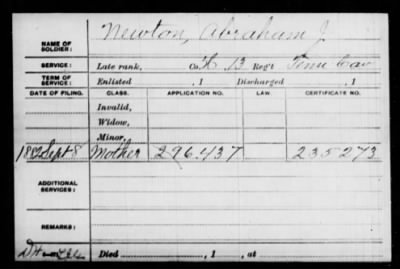 Newton, Abraham J
NAME OF SOLDIER:
SERVICE: Late rank, Co. 13 Reg't Tenn Cav
TERM OF SERVICE: Enlisted , 1 Discharged , 1
DATE OF FILING. CLASS. APPLICATION NO. LAW CERTIFICATE NO.
Invalid,
Widow,
Minor,
1882 Sept 8 Mother 296.437 235273
ADDITIONAL SERVICES:
REMARKS:
Died , 1 , at